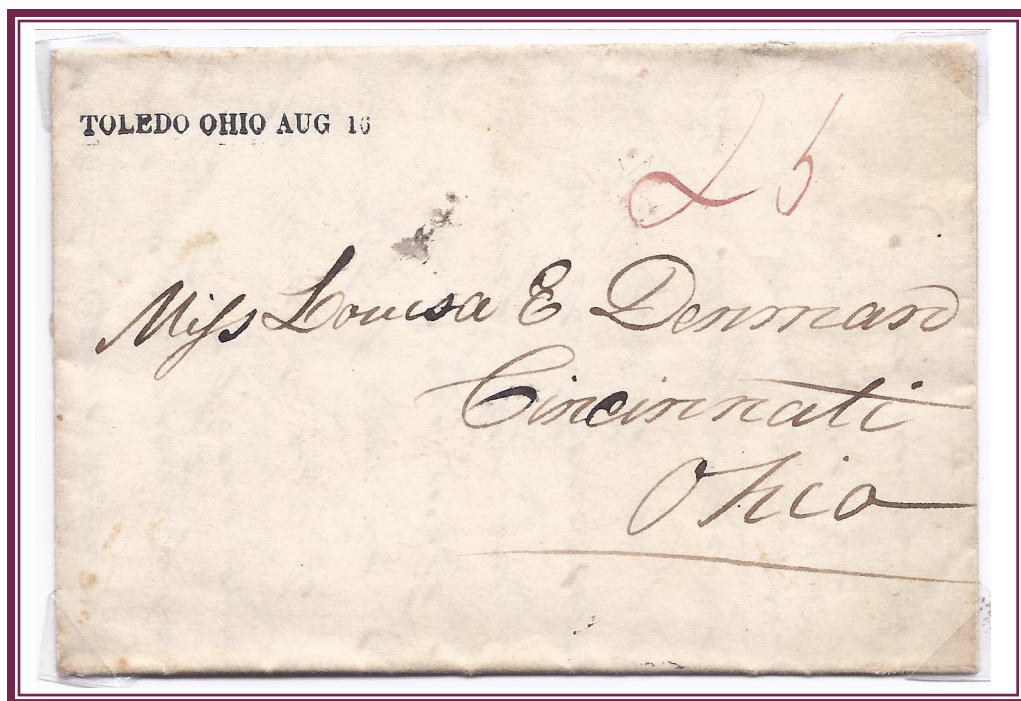 TOLEDO OHIO AUG 16
25
Miſs Louisa E Denman
Cincinnati
Ohio